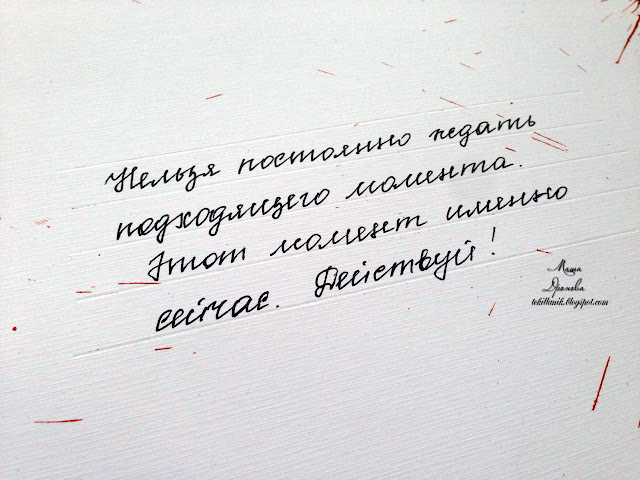 Нельзя постоянно ждать
подходящего момента.
Этот момент именно
сейчас. Действуй!
Маша
Дронова
tekillanik.blogspot.com